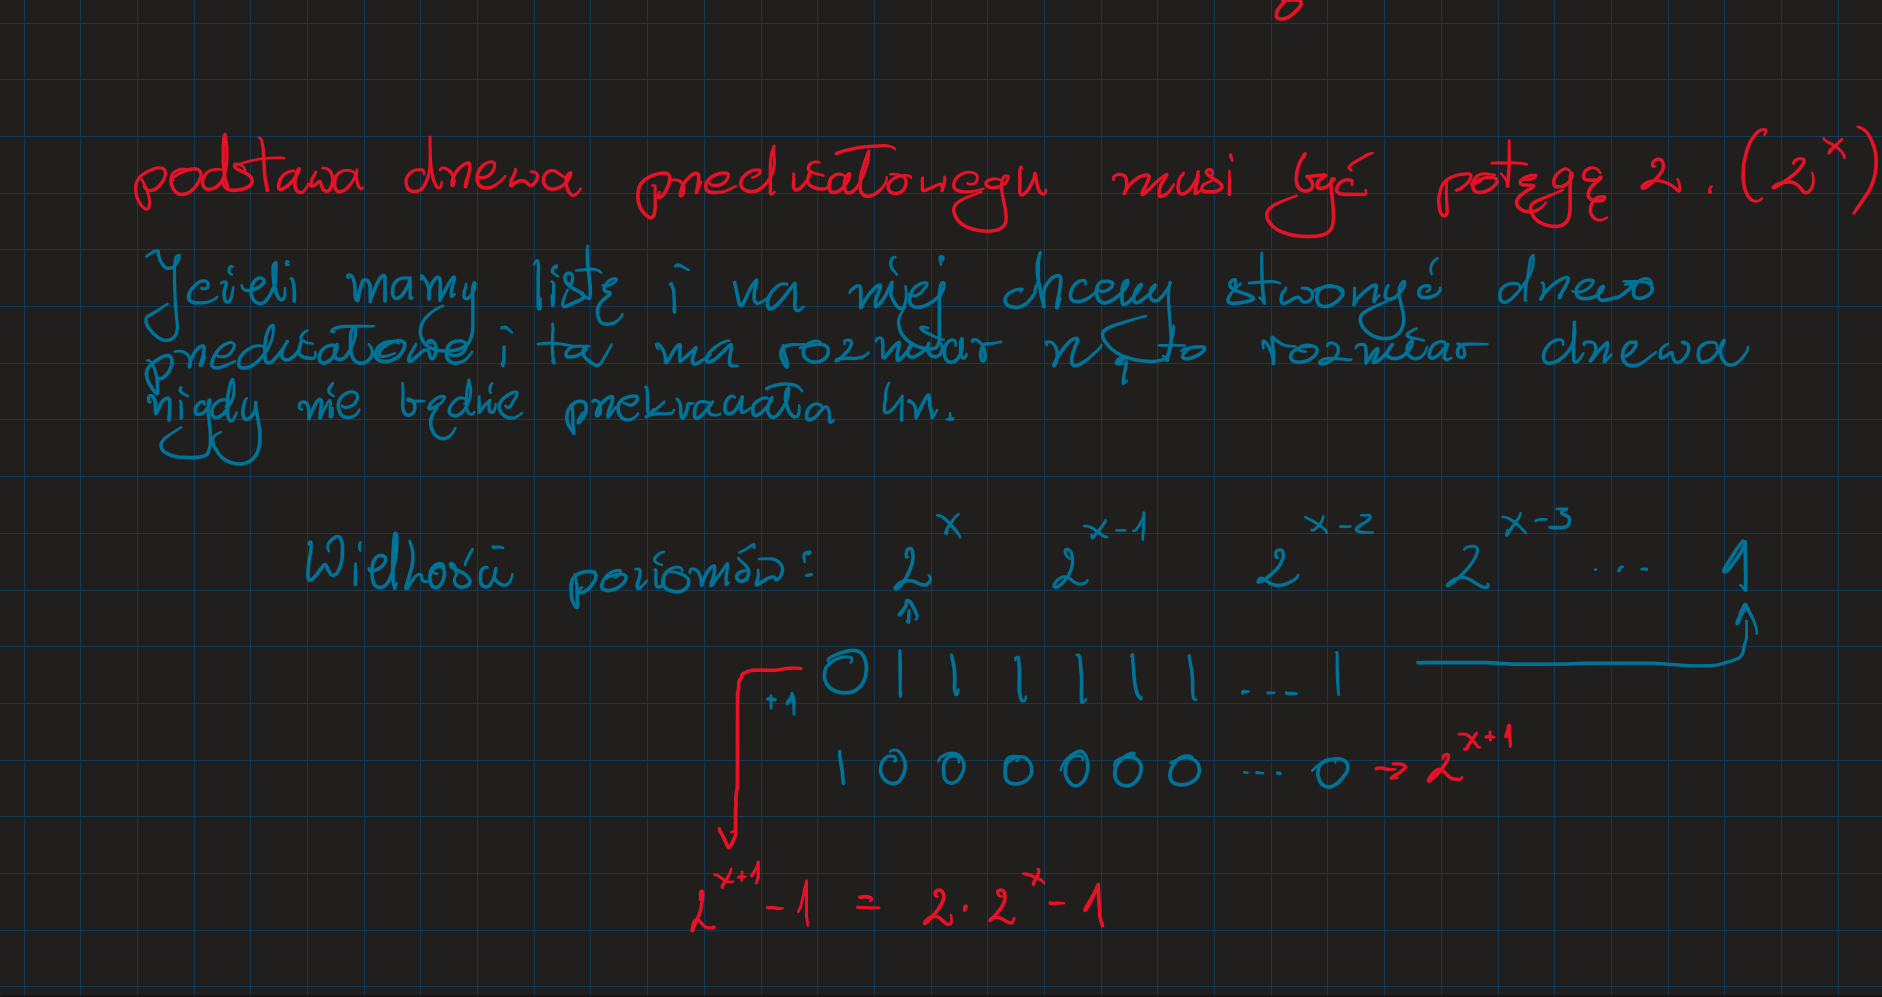 podstawa drzewa przedziałowego musi być potęgą 2. (2^x)
Jeżeli mamy listę i na niej chcemy stworzyć drzewo
przedziałowe i ta ma rozmiar n, to rozmiar drzewa
nigdy nie będzie przekraczała 4n.
Wielkości poziomów: 2^x 2^{x-1} 2^{x-2} 2^{x-3} ... 1
0 1 1 1 1 1 1 ... 1
+1
1 0 0 0 0 0 0 ... 0 → 2^{x+1}
2^{x+1} - 1 = 2 · 2^x - 1